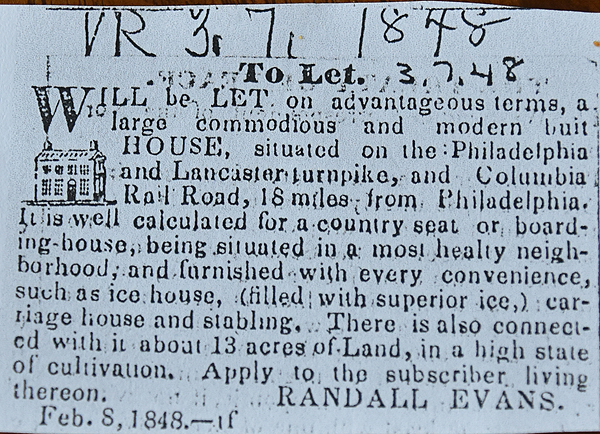 VR 3.7.1848
To Let. 3.7.48
WILL be LET on advantageous terms, a
large commodious and modern buit
HOUSE, situated on the Philadelphia
and Lancaster turnpike, and Columbia
Rail Road, 18 miles from Philadelphia.
It is well calculated for a country seat or board-
ing-house, being situated in a most healty neigh-
borhood, and furnished with every convenience,
such as ice house, (filled with superior ice,) car-
riage house and stabling. There is also connect-
ed with it about 13 acres of Land, in a high state
of cultivation. Apply to the subscriber living
thereon. RANDALL EVANS.
Feb. 8, 1848.—tf